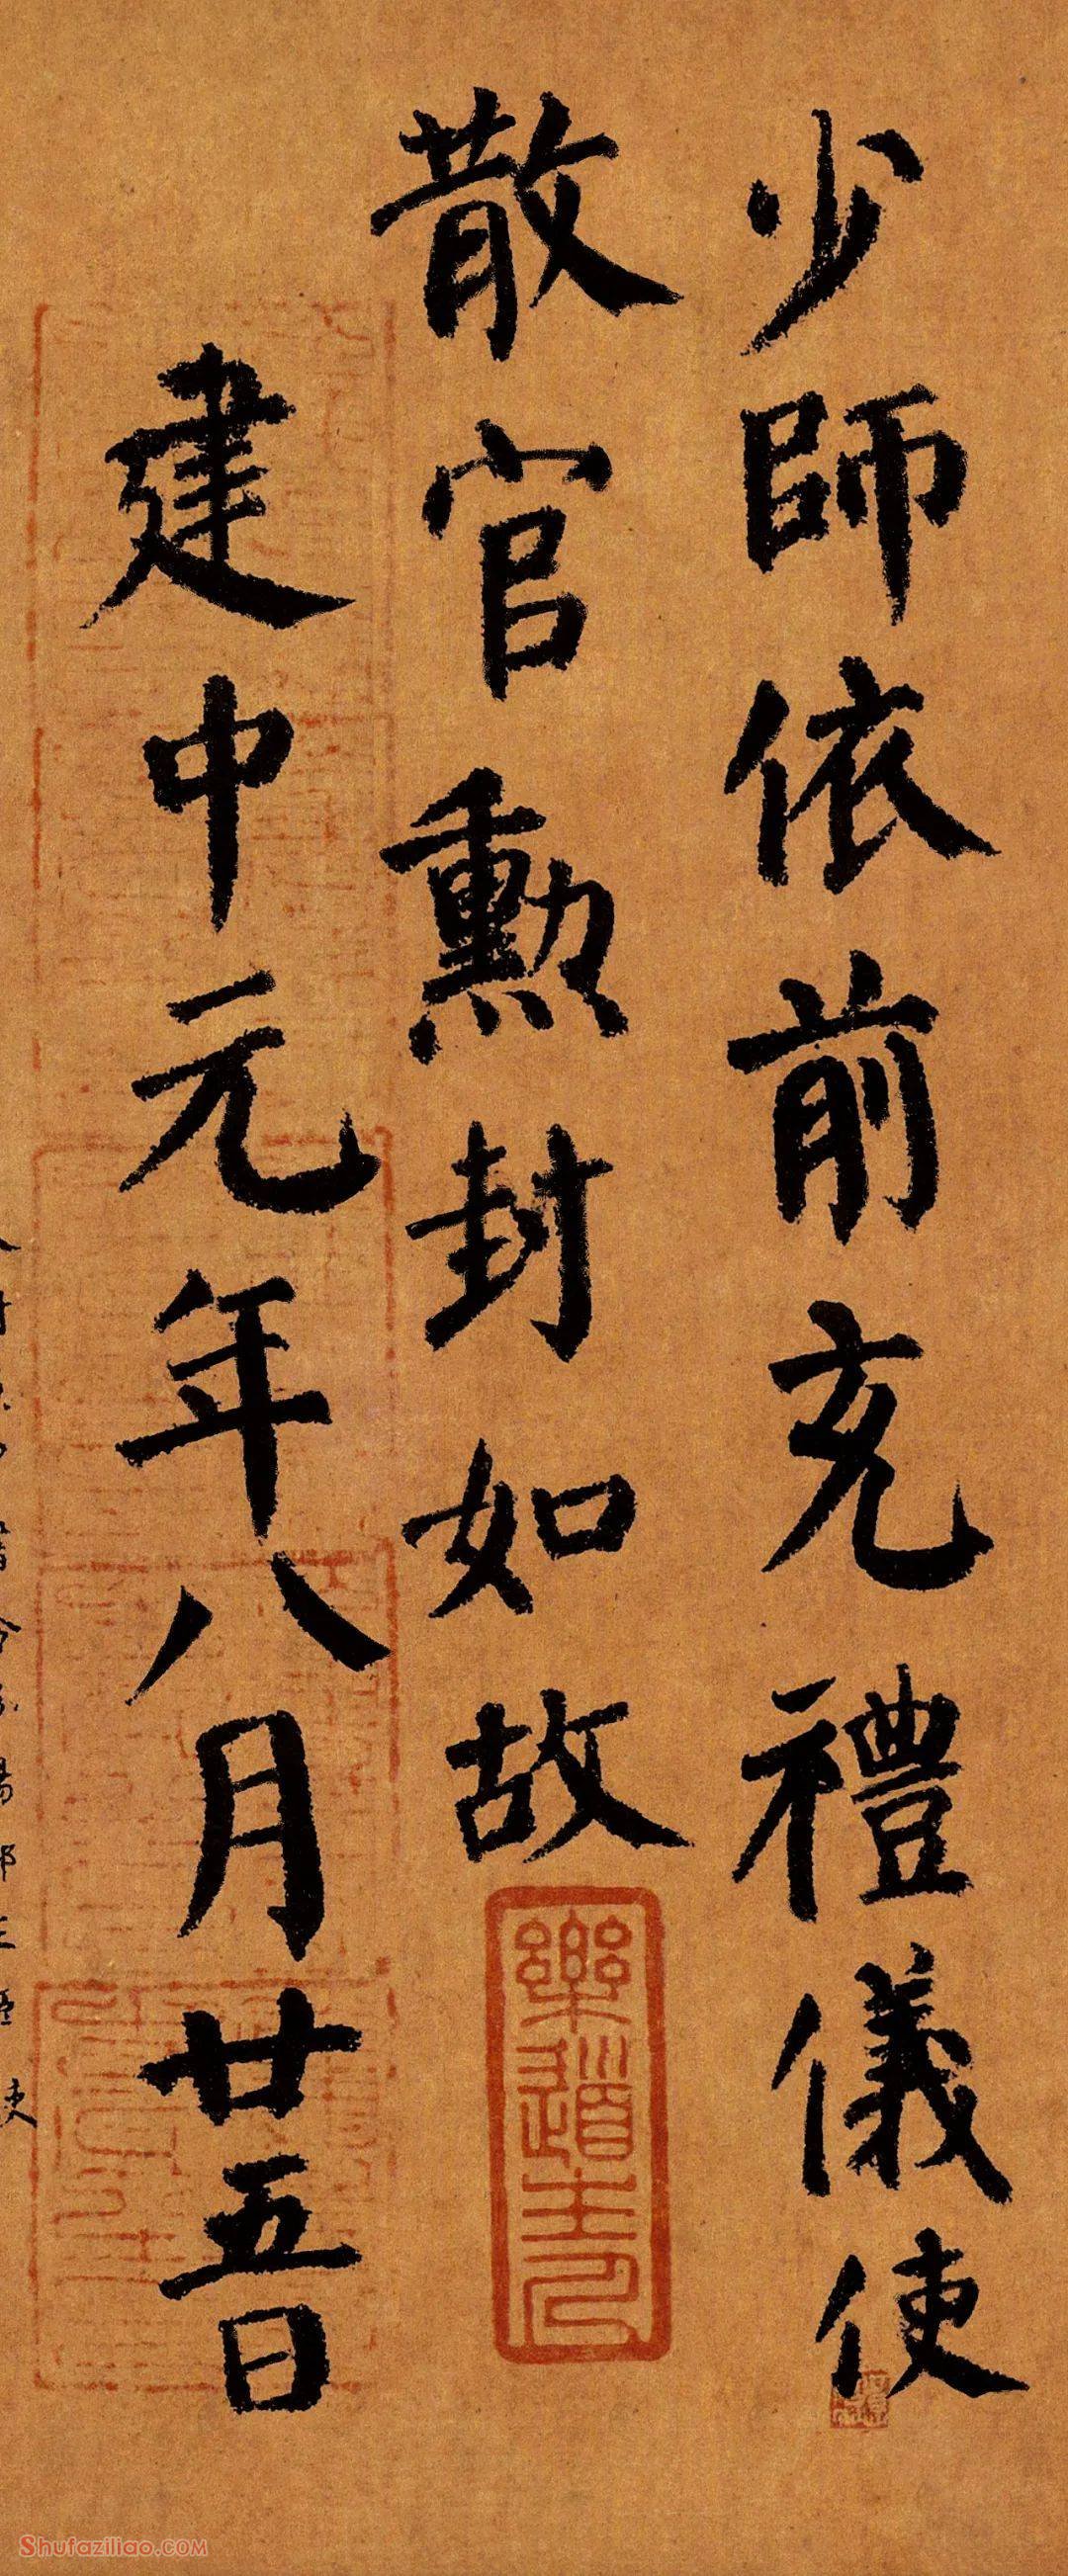 少師依前充禮儀使
散官勳封如故
建中元年八月廿五日
樂道主人
Shufaziliao.COM